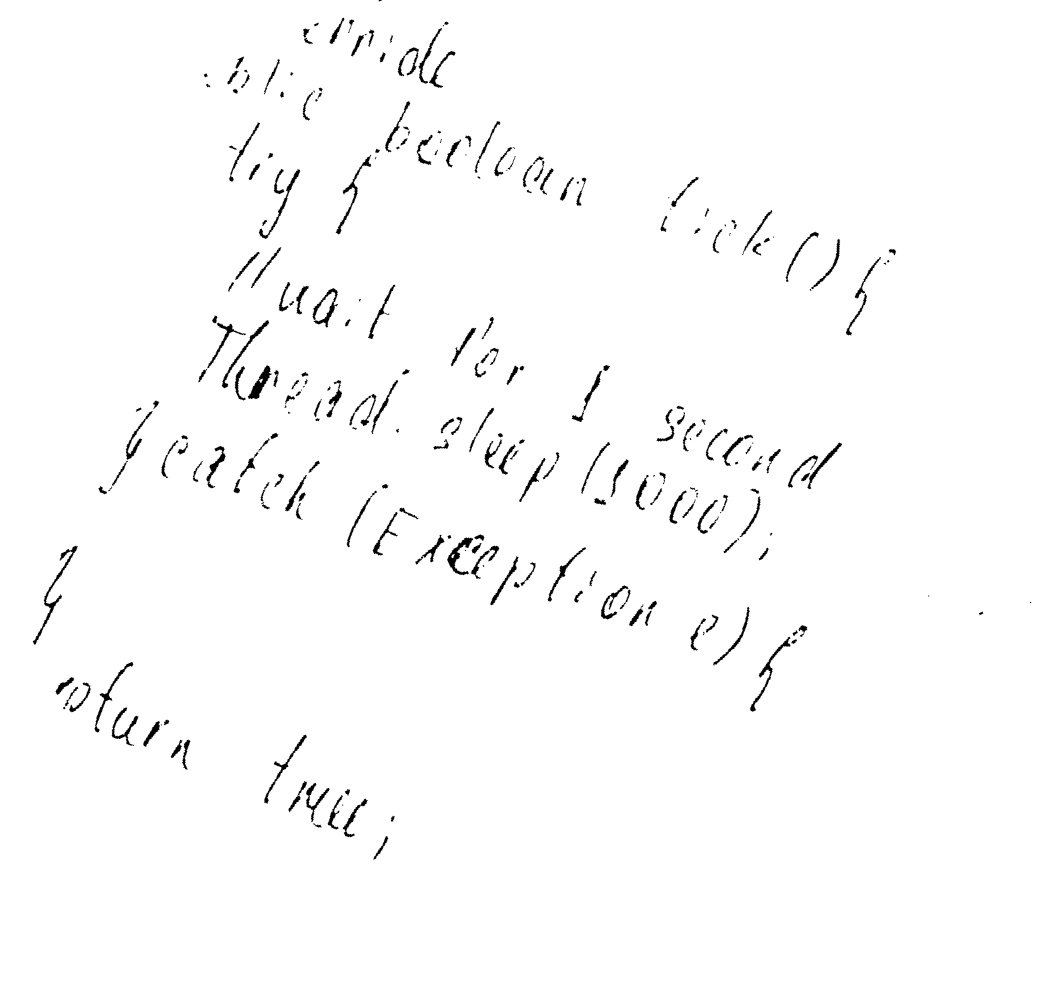 erride
blic boolean tick() {
try {
// wait for 1 second
Thread.sleep(1000);
} catch (Exception e) {
}
return true;